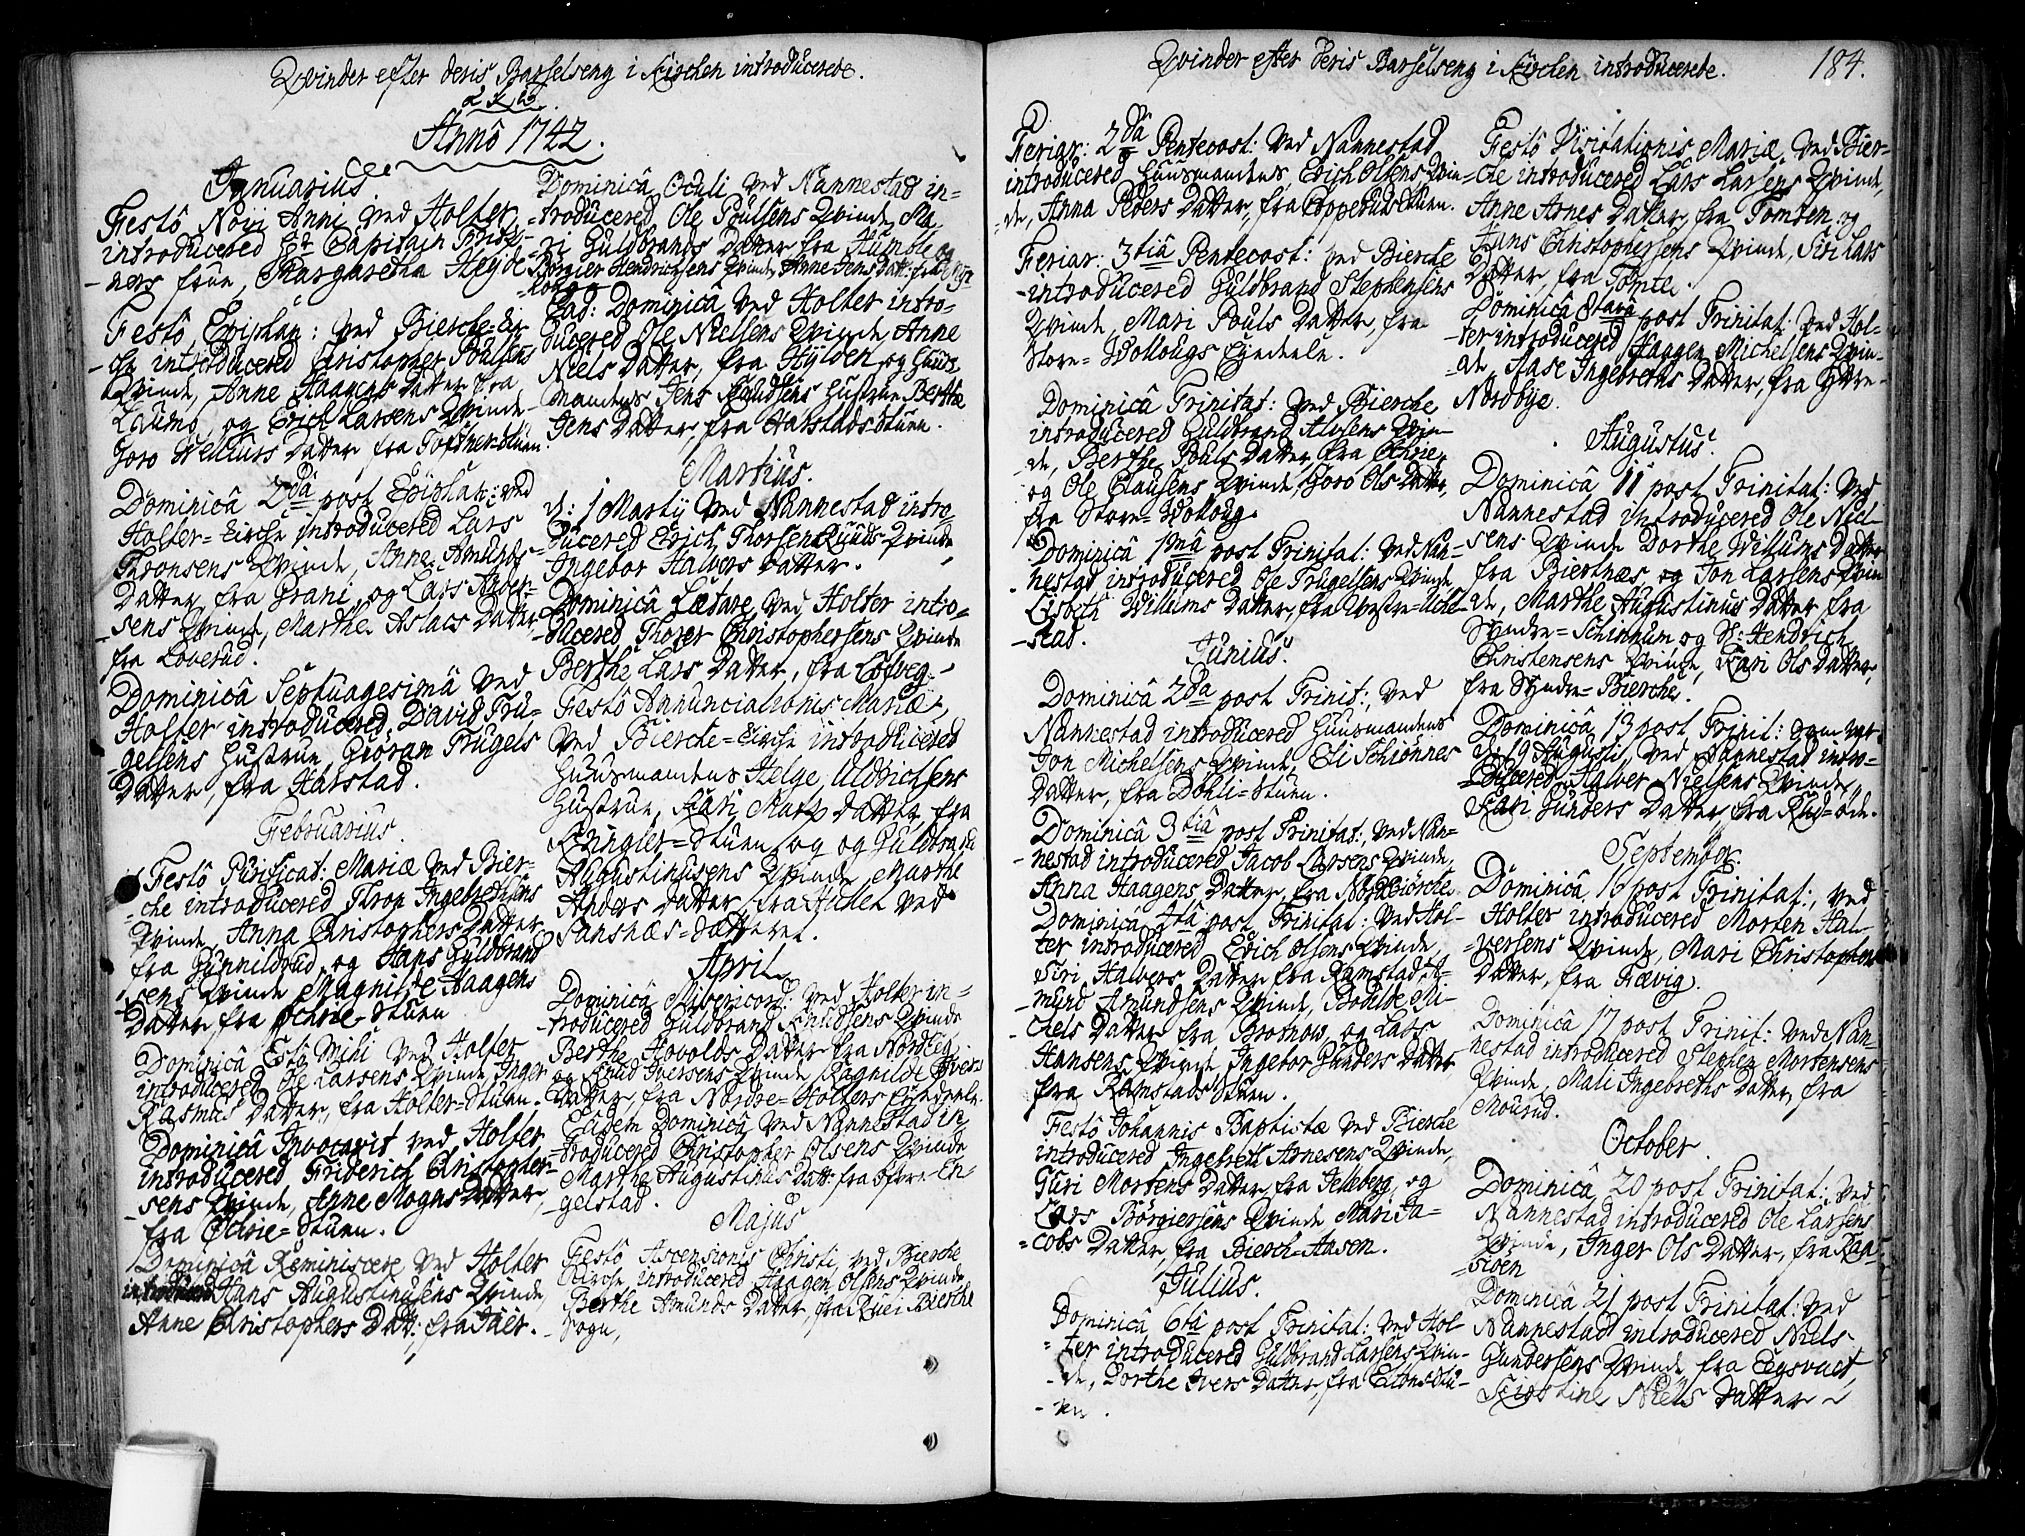 Qvinder efter deris Barselseng i Kirchen introducerede.
Anno 1742.
Januarius
Festô Novi Anni, ved Holter
introducered Hr Capitain
-ners frue, Margaretha Heyde
Festô Epiphan: ved Bierche-Kir-
-che introducered Christopher Poulsens
Qvinde, Anne Haagens Datter fra
og Erich Larsens Qvinde
Goro Wellums Datter fra
Dominicâ 2dâ post Epiphan: ved
Holter-Kirche introducered Lars
Thronsens Qvinde, Anne Amunds-
Datter fra Grani, og Lars Ander-
-sens Qvinde, Marthe Aslacs Datter
fra Loverud.
Dominicâ Septuagesimâ ved
Holter introducered David Tru-
-gelsens Hustrue, Gioran Trugels
Datter, fra Harstad.
Februarius.
Festô Purificat: Mariæ ved Bier-
-che introducered Thron Ingebrethsens
Qvinde, Anna Christophers Datter
fra Gunnildrud, og Hans Guldbrand
-sens Qvinde Magnilde Haagens
Datter fra Ochrie-Stuen
Dominicâ Esto Mihi ved Holter
introducered Ole Larsens Qvinde Inger
Rasmus Datter, fra Holter-Stuen.
Dominicâ Invocavit ved Holter
introducered Friderich Christopher-
-sens Qvinde, Anne Mogns Datter,
fra Ochrie-Stuen.
Dominicâ Reminiscere ved Holter
introducered Hans Augustinusens Qvinde,
Anne Christophers Datt: fra Jaer.
Dominicâ Oculi ved Nannestad in-
-troducered, Ole Poulsens Qvinde, Ma-
-ri Guldbrands Datter fra Humble og
Børgier Hendrichsens Qvinde Anne Jens Datt: fra
Ead: Dominicâ ved Holter intro-
ducered Ole Nielsens Qvinde Anne
Niels Datter, fra Hylden og Huus-
mandens Jens Knudsens Hustrue Berthe
Jens Datter, fra Harstads-Stuen.
Martius.
d: 1 Martij ved Nannestad intro-
ducered Erich Thorsens Ruuds Qvinde
Ingebor Halvors Datter.
Dominicâ Lætare ved Holter intro-
-ducered Thorer Christophersens Qvinde
Berthe Lars Datter, fra Lofveg.
Festô Annunciationis Mariæ,
ved Bierche-Kirche introducered
Huusmandens Helge Uldrichsens
Hustrue, Kari Mats Datter, fra
Kringler-Stuen og og Guldbrand
Augustinusens Qvinde Marthe
Anders Datter fra Hielet ved
Sansnæs-Sætteret.
April
Dominicâ Misericord: ved Holter in-
-troducered Guldbrand Knudsens Qvinde
Berthe Hovolds Datter fra Nordleg
og Knud Iversens Qvinde Ragnilde Ivers
Datter, fra Nordre-Holters Eyedeele.
Eadem Dominicâ ved Nannestad in-
-troducered Christopher Olsens Qvinde
Marthe Augustinus Datt: fra Store-En-
-gelstad.
Majus
Festô Ascensionis Christi, ved Bierche
Kirche, introducered Haagen Olsens Qvinde
Berthe Amunds Datter, fra Bierche
Sogn,
Qvinder efter deris Barselseng i Kirchen introducerede.
184.
Feriar: 2dâ Pentecost: ved Nannestad
introducered Huusmandens, Erich Olsens Qvin-
-de, Anna Peders Datter, fra Stuen.
Feriar: 3tiâ Pentecost: ved Bierche
-introducered Guldbrand Stephensens
Qvinde, Mari Pouls Datter, fra
Store-Wollougs Eyedeele.
Dominicâ Trinitat: ved Bierche
introducered Guldbrand Alvsens Qvin-
-de, Berthe Pouls Datter fra Ochrie,
og Ole Clausens Qvinde, Goro Ols Datter,
fra Store-Wolloug.
Dominicâ 1mâ post Trinitat: ved Nan-
-nestad introducered Ole Trugelsens Qvinde
Lisbeth Willums Datter, fra
-stad.
Junius.
Dominicâ 2da post Trinit:, ved
Nannestad introducered Huusmandens
Jon Michelsens Qvinde, Eli Schiønnes
Datter, fra Dohli-Stuen.
Dominicâ 3tiâ post Trinitat:, ved Nan-
-nestad introducered Jacob Larsens Qvinde,
Anna Haagens Datter, fra
Dominica 4tâ post Trinitat: ved Hol-
ter introducered Erich Olsens Qvinde,
Siri Halvors Datter fra Ramstad, A-
-mund Amundsens Qvinde, Bodelhe Mi-
-chels Datter fra og Lars
Hansens Qvinde Ingebor Gunders Datter
fra Ramstads Stuen.
Festô Johannis Baptistæ ved Bierche
introducered Ingebrett Arnesens Qvinde,
Guri Mortens Datter, fra Jelleberg, og
Lars Børgiersens Qvinde Mari Ja-
-cobs Datter, fra Biersch-Aasen.
Julius.
Dominicâ 6tâ post Trinitat: ved Hol
-ter introducered Guldbrand Larsens Qvin-
-de, Dorthe Ivers Datter, fra Stu-
-en.
Festô Visitationis Mariæ, ved Bier-
-che introducered Lars Larsens Qvinde,
Anne Arnes Datter, fra Tomten, og
Hans Christophersens Qvinde, Siri Lars
Datter, fra Tomte.
Dominicâ 8tavâ post Trinitat: ved Hol-
-ter introducered Haagen Michelsens Qvin-
-de, Aase Ingebreths Datter, fra Yttre-
Nordbye.
Augustus.
Dominicâ 11 post Trinitat: ved
Nannestad introducered Ole Niel-
sens Qvinde Dorthe Willums Datter
fra Biertnæs, og Jon Larsens Qvin
de, Marthe Augustinus Datter fra
Syndre-Schinnum og Sl: Hendrich
Christensens Qvinde, Kari Ols Datter,
fra Syndre-Bierche.
Dominicâ 13 post Trinit: som var
d: 19 Augusti, ved Nannestad intro-
-ducered Halvor Nielsens Qvinde,
Kari Gunders Datter, fra Rud-øde.
September.
Dominicâ 16 post Trinitat:, ved
Holter introducered Morten Hal-
-versens Qvinde, Mari Christophers
Datter, fra Fævig.
Dominicâ 17 post Trinit: ved Nan-
nestad introducered Stephen Mortensens
Qvinde, Mali Ingebreths Datter, fra
Mourud.
October.
Dominicâ 20 post Trinitat:, ved
Nannestad introducered Ole Larsens
Qvinde, Inger Ols Datter, fra Kaa-
-sioen
Dominicâ 21 post Trinitat: ved
Nannestad introducered Niels
Gundersens Qvinde fra
Kirstine Niels Datter